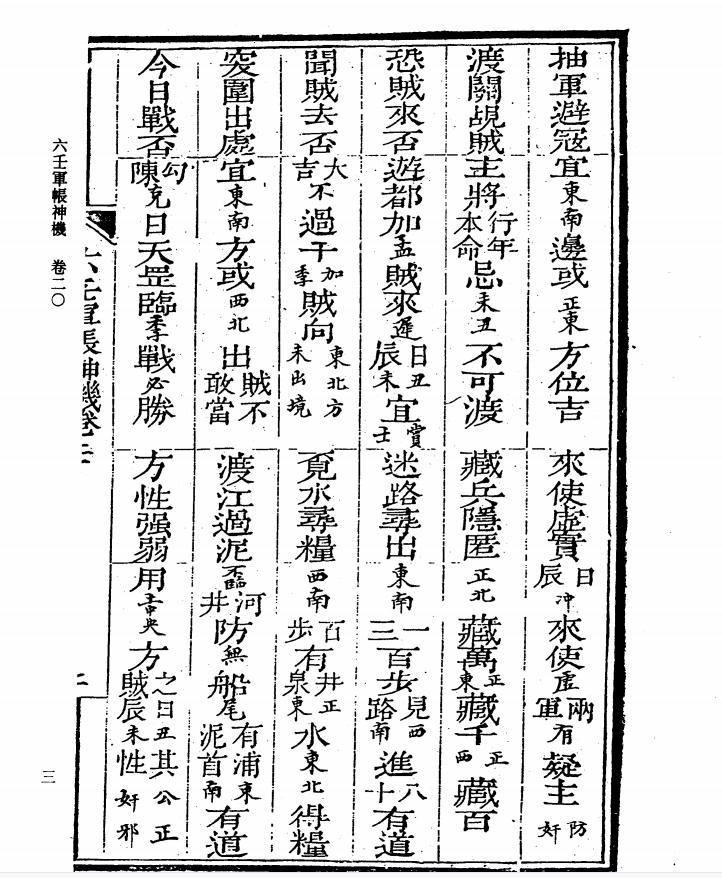 抽軍避冦宜東南邊或正東方位吉 來使虛實日辰冲來使虛兩軍有疑主防奸
渡關覘賊主將行年本命忌未丑不可渡 藏兵隱匿正北藏萬正東藏千正西藏百
恐賊來否遊都加孟賊來遲日丑辰未宜賞士 迷路尋出東南一三百步見西路南進八十有道
聞賊去否大吉不過干加季賊向東北方未出境 覓水尋糧西南百步有井正泉東水東北得糧
突圍出處宜東南方或西北出賊不敢當 渡江過泥臨河井防無船尾有浦東泥首南有道
今日戰否勾陳克日天罡臨季戰必勝 方性强弱用方之日丑賊辰未性其公正奸邪
六壬軍帳神機卷二
二
六壬軍帳神機 卷二〇
三